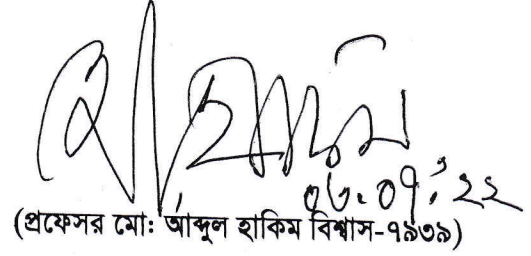 ০৬.০৭.'২২
(প্রফেসর মো: আব্দুল হাকিম বিশ্বাস-৭৯৩৯)